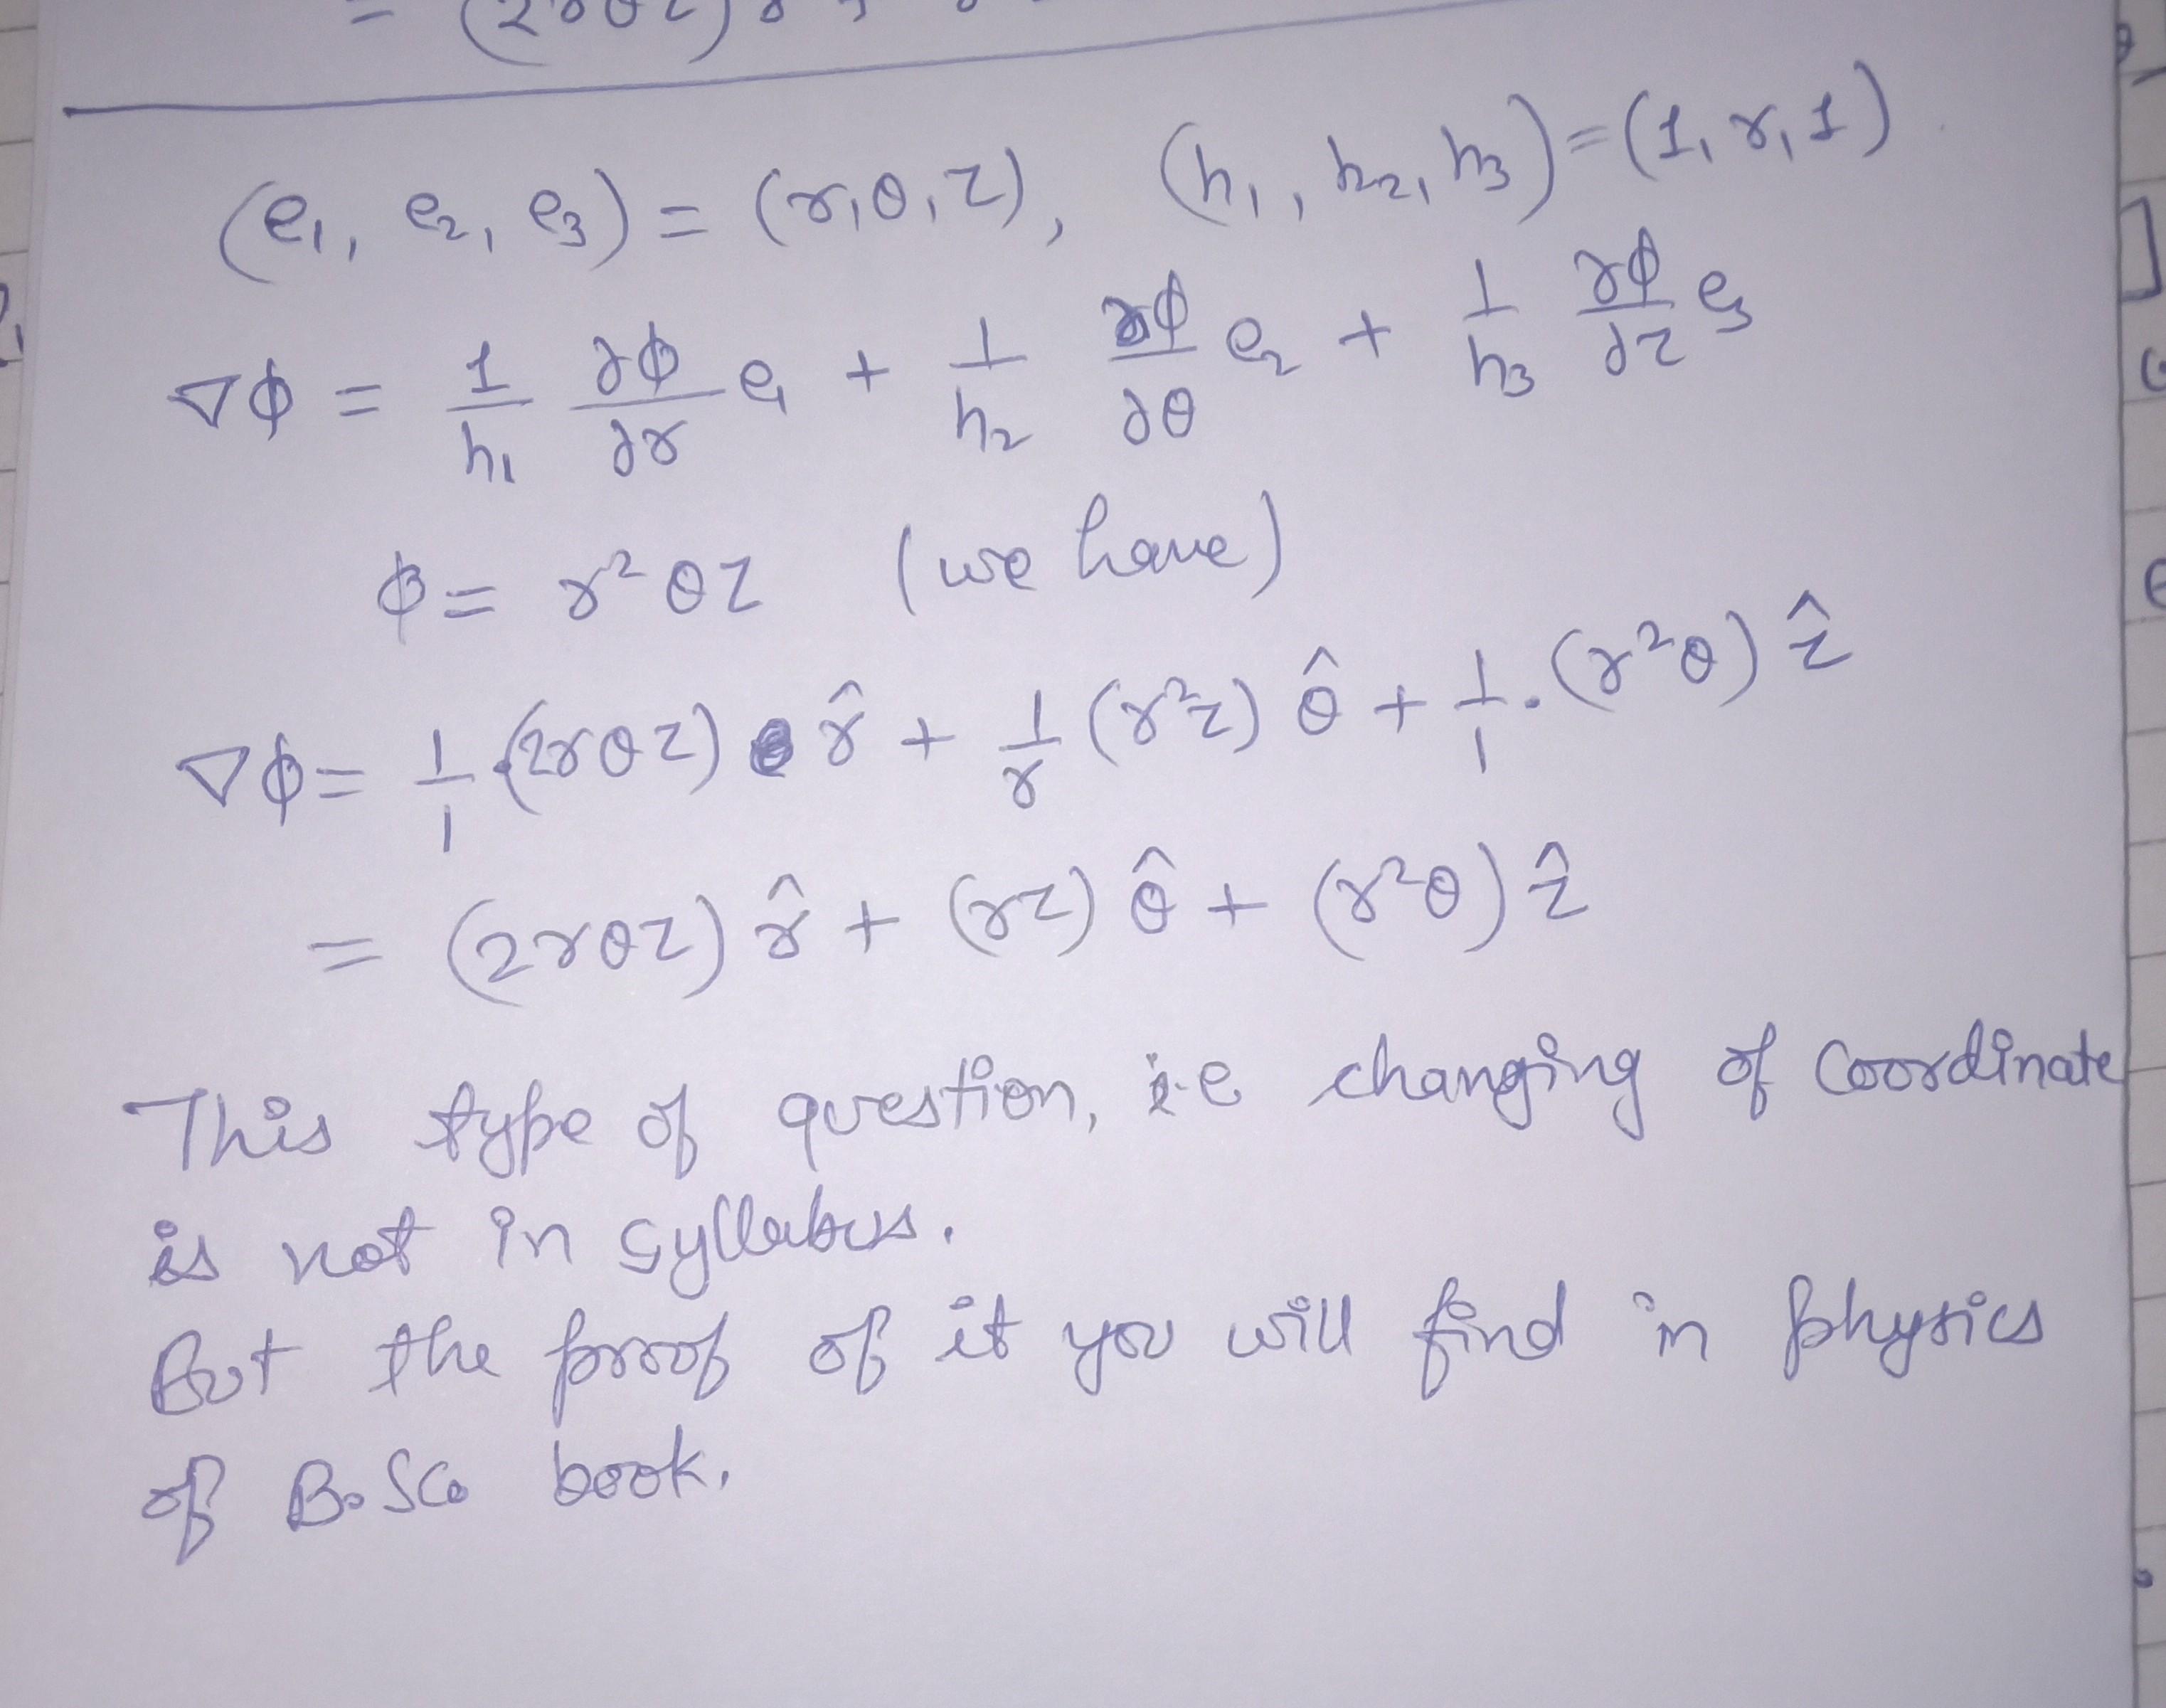 = (2rθz) r
(e₁, e₂, e₃) = (r, θ, z), (h₁, h₂, h₃) = (1, r, 1)
∇φ = 1/h₁ ∂φ/∂r e₁ + 1/h₂ ∂φ/∂θ e₂ + 1/h₃ ∂φ/∂z e₃
φ = r²θz (we have)
∇φ = 1/1 (2rθz) r̂ + 1/r (r²z) θ̂ + 1/1 . (r²θ) ẑ
= (2rθz) r̂ + (rz) θ̂ + (r²θ) ẑ
This type of question, i.e changing of Coordinate
is not in syllabus.
But the proof of it you will find in physics
of B.Sc. book.